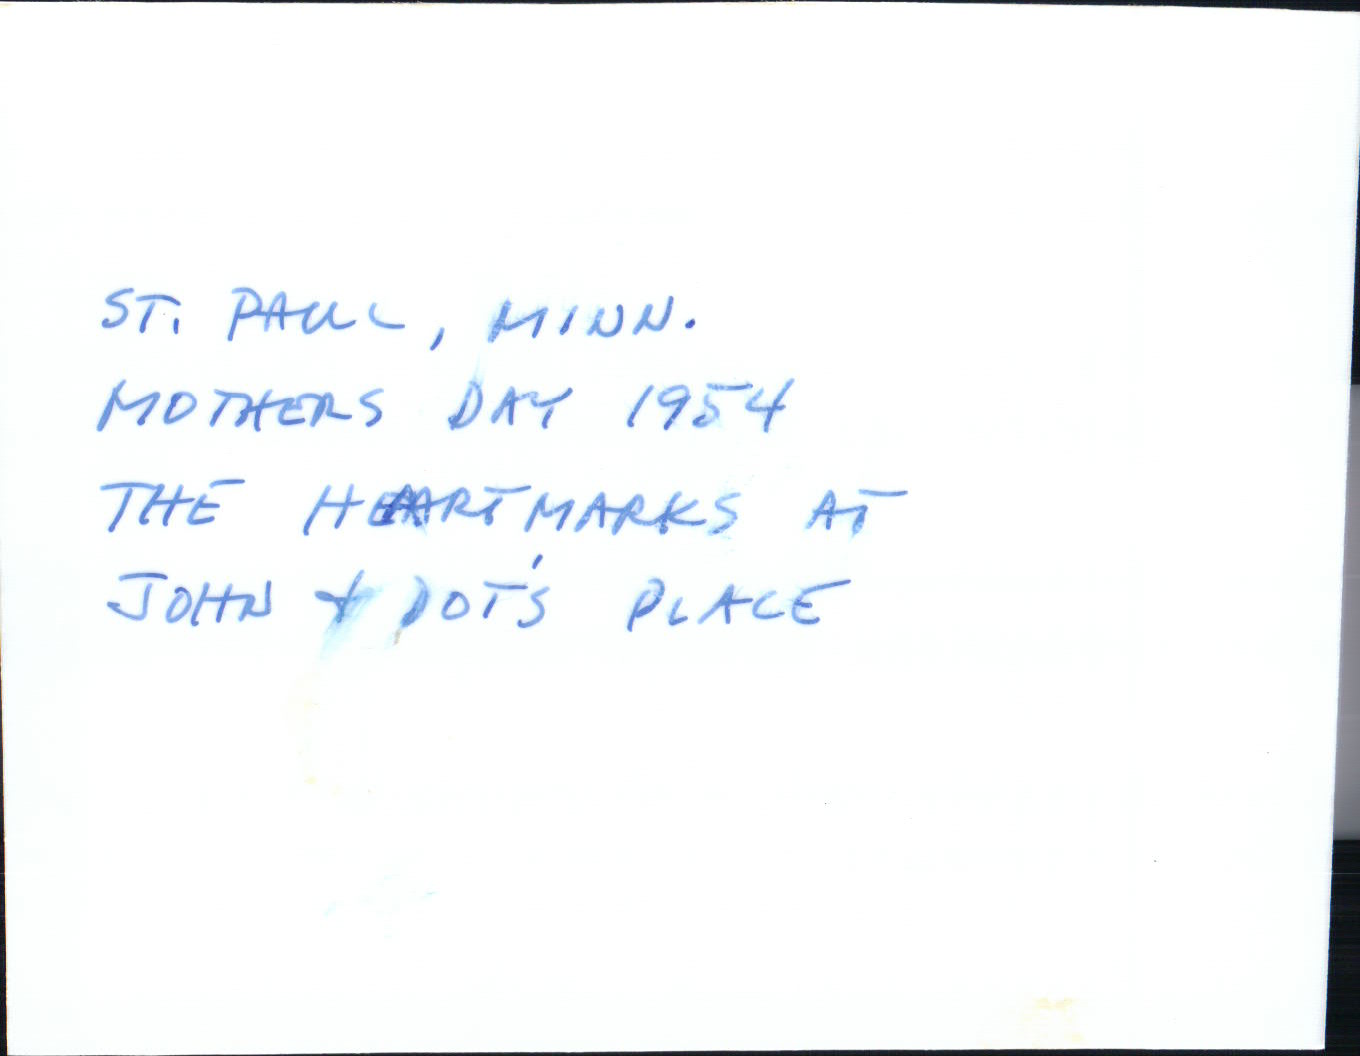 ST. PAUL, MINN.
MOTHERS DAY 1954
THE HEARTMARKS AT
JOHN & DOT'S PLACE